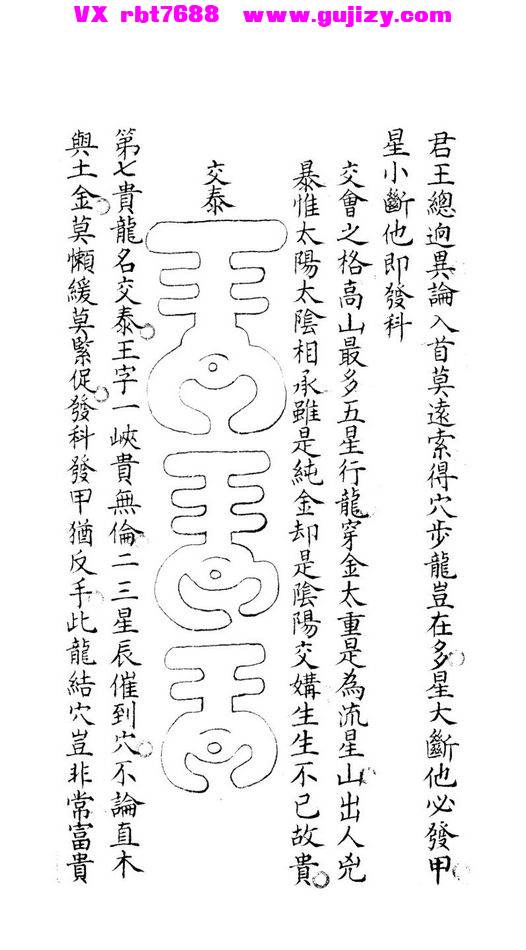 VX rbt7688 www.gujizy.com
君王總逈異論入首莫遠索得穴步龍豈在多星大斷他必發甲
星小斷他即發科
交會之格高山最多五星行龍穿金太重是為流星山出人兇
暴惟太陽太陰相承雖是純金却是陰陽交媾生生不已故貴
交泰
第七貴龍名交泰王字一峽貴無倫二三星辰催到穴不論直木
與土金莫懶緩莫緊促發科發甲猶反手此龍結穴豈非常富貴